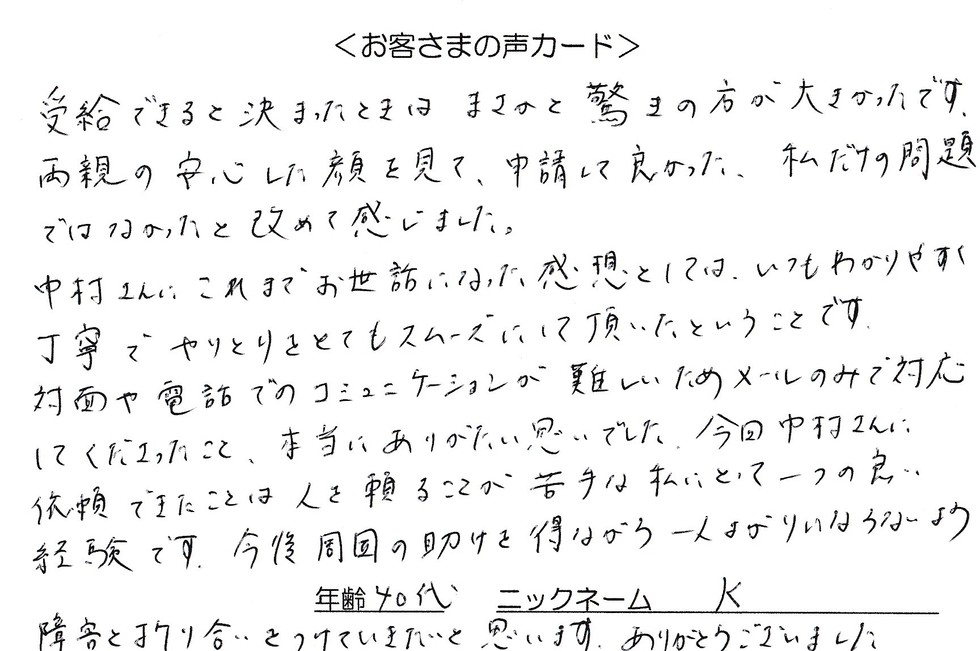 ＜お客さまの声カード＞
受給できると決まったときは まさかと 驚きの方が大きかったです。
両親の安心した顔を見て、申請して良かった、私だけの問題
ではなかったと改めて感じました。
中村さんに これまで お世話になった感想としては、いつもわかりやすく
丁寧で やりとりをとてもスムーズにして頂いたということです。
対面や電話でのコミュニケーションが難しいためメールのみで対応
してくださったこと、本当にありがたい思いでした。今回中村さんに
依頼できたことは人を頼ることが苦手な私にとって一つの良い
経験です。今後周囲の助けを得ながら一人よがりにならないよう
年齢 40代 ニックネーム K
障害と折り合いをつけていきたいと思います。ありがとうございました